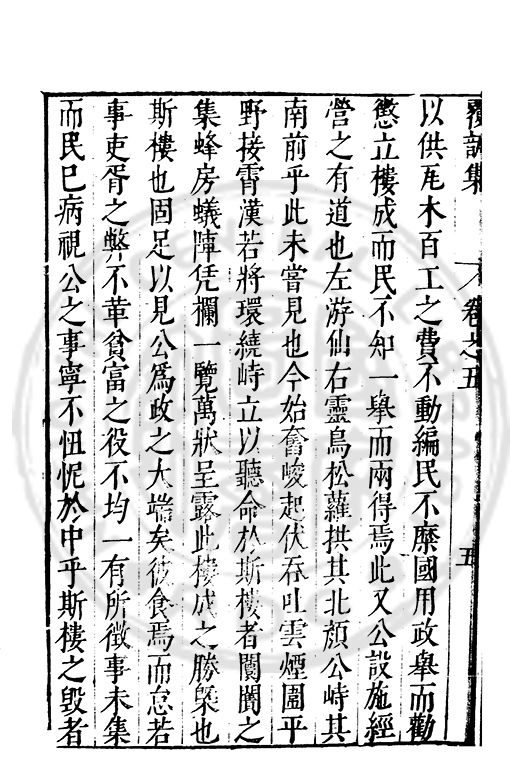 覆瓿集　卷之五　五
以供瓦木百工之費不動編民不縻國用政舉而勸
懲立樓成而民不知一舉而兩得焉此又公設施經
營之有道也左游仙右靈鳥松蘿拱其北顏公峙其
南前乎此未嘗見也今始奮峻起伏吞吐雲煙圖平
野接霄漢若將環繞峙立以聽命於斯樓者闤闠之
集蜂房蟻陣凭欄一覽萬狀呈露此樓成之勝槩也
斯樓也固足以見公爲政之大端矣彼食焉而怠若
事吏胥之弊不革貧富之役不均一有所徵事未集
而民已病視公之事寧不忸怩於中乎斯樓之毀者